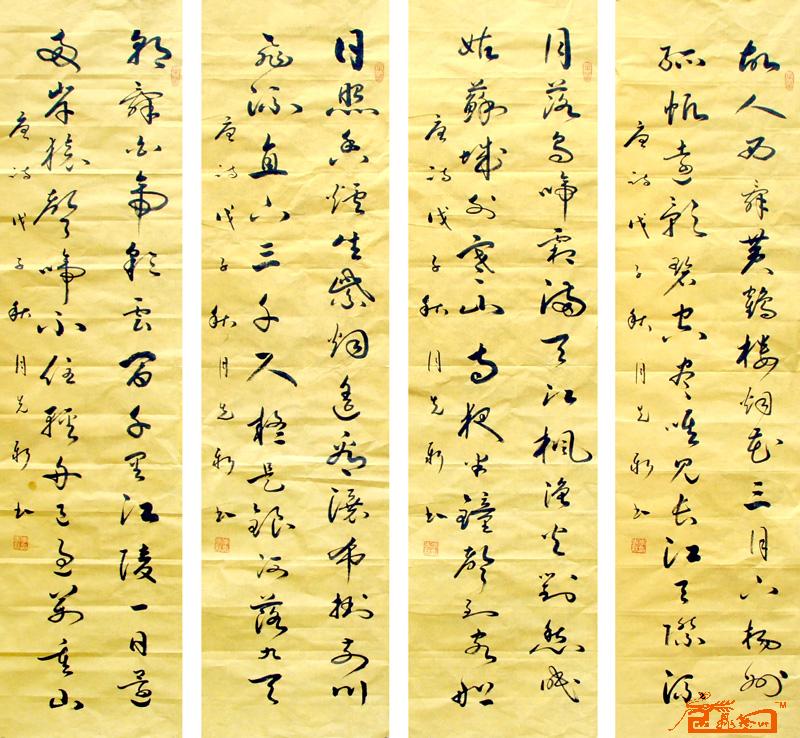 故人西辞黄鹤楼烟花三月下扬州
孤帆远影碧空尽唯见长江天际流
唐诗戊子秋月先彬书
月落乌啼霜满天江枫渔火对愁眠
姑苏城外寒山寺夜半钟声到客船
唐诗戊子秋月先彬书
日照香炉生紫烟遥看瀑布挂前川
飞流直下三千尺疑是银河落九天
唐诗戊子秋月先彬书
朝辞白帝彩云间千里江陵一日还
两岸猿声啼不住轻舟已过万重山
唐诗戊子秋月先彬书